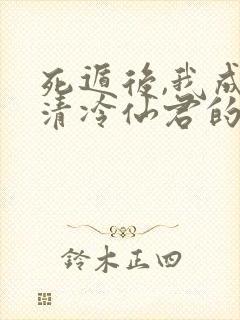 死遁後,我成
清冷仙君的
鈴木正四